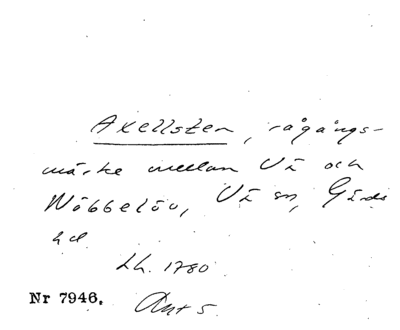 Axellsten, rågångs-
märke mellan Vä och
Wäbbelöv, Vä sn, Gärds
hd
Lh. 1780.
Nr 7946. Akt 5.